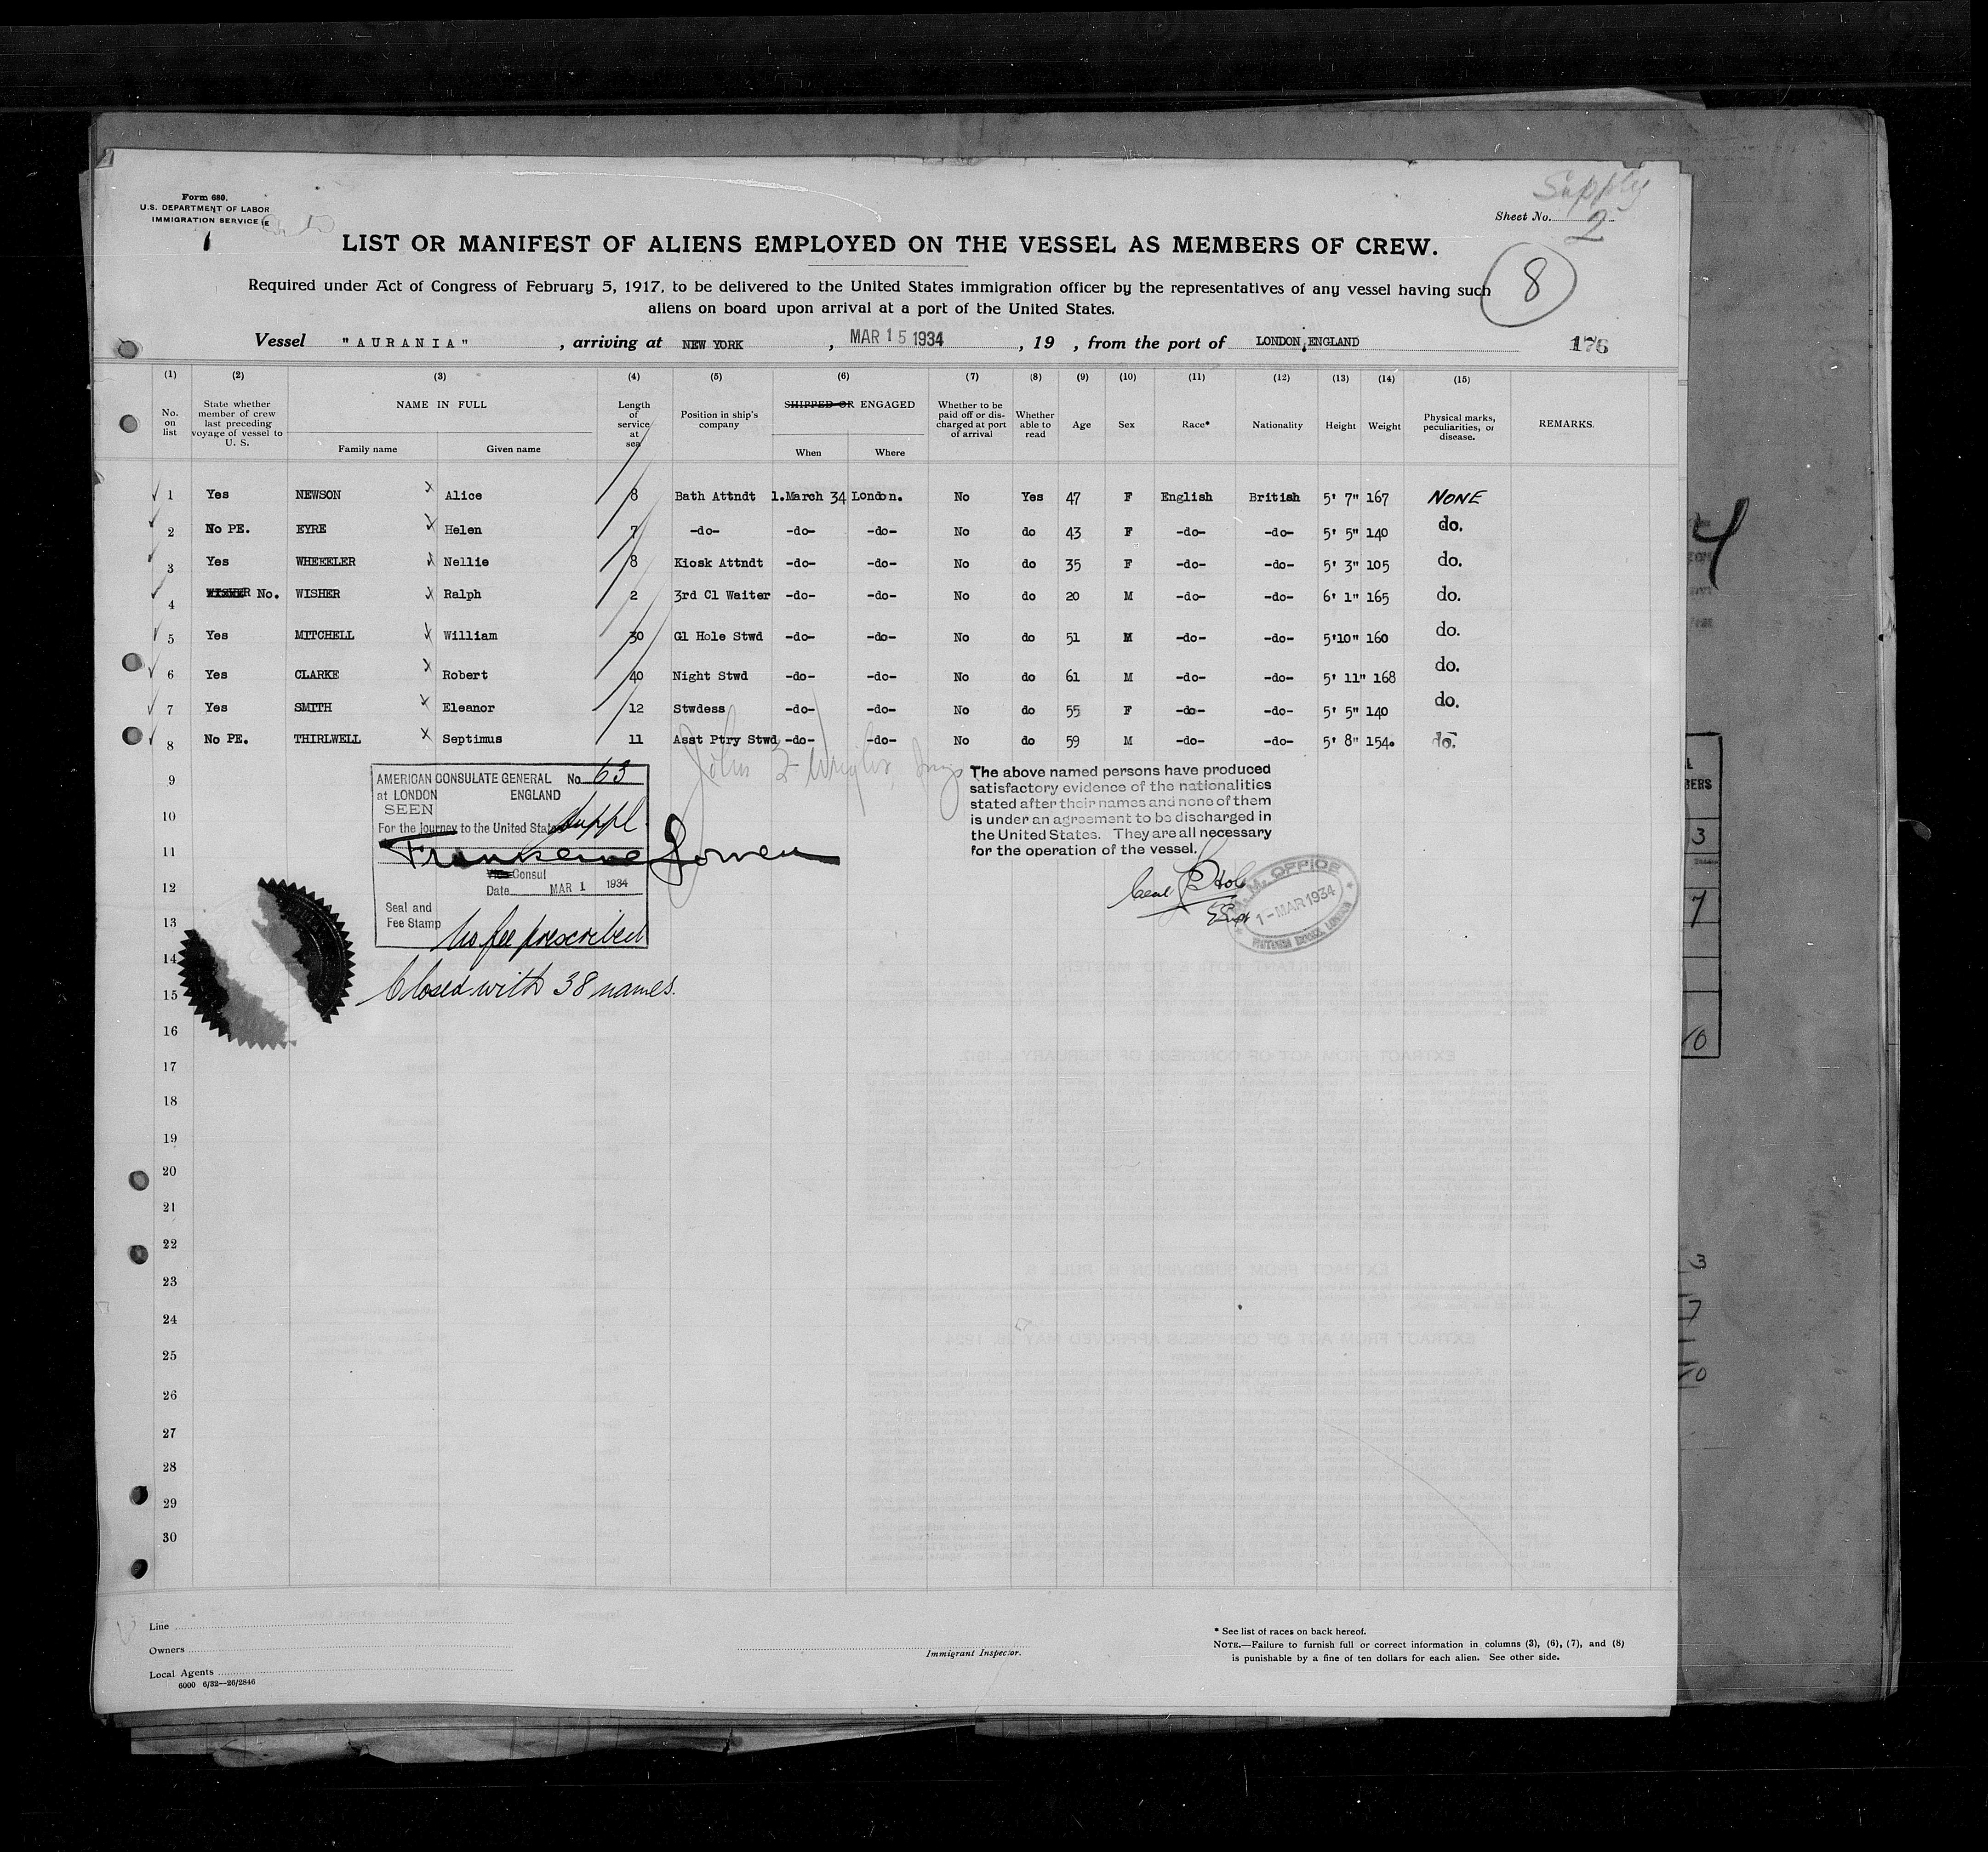 Form 680.
U.S. DEPARTMENT OF LABOR
IMMIGRATION SERVICE
Supply
Sheet No. 2
LIST OR MANIFEST OF ALIENS EMPLOYED ON THE VESSEL AS MEMBERS OF CREW.
8
Required under Act of Congress of February 5, 1917, to be delivered to the United States immigration officer by the representatives of any vessel having such
aliens on board upon arrival at a port of the United States.
Vessel "AURANIA", arriving at NEW YORK, MAR 15 1934, 19 , from the port of LONDON, ENGLAND 176
(1) (2) (3) (4) (5) (6) (7) (8) (9) (10) (11) (12) (13) (14) (15)
No. on list State whether member of crew last preceding voyage of vessel to U. S. NAME IN FULL Family name Given name Length of service at sea Position in ship's company SHIPPED OR ENGAGED When Where Whether to be paid off or discharged at port of arrival Whether able to read Age Sex Race* Nationality Height Weight Physical marks, peculiarities, or disease. REMARKS.
1 Yes NEWSON Alice 8 Bath Attndt 1.March 34 London. No Yes 47 F English British 5' 7" 167 NONE
2 No PE. EYRE Helen 7 -do- -do- -do- No do 43 F -do- -do- 5' 5" 140 do.
3 Yes WHEEELER Nellie 8 Kiosk Attndt -do- -do- No do 35 F -do- -do- 5' 3" 105 do.
4 WISHER No. WISHER Ralph 2 3rd Cl Waiter -do- -do- No do 20 M -do- -do- 6' 1" 165 do.
5 Yes MITCHELL William 30 Gl Hole Stwd -do- -do- No do 51 M -do- -do- 5'10" 160 do.
6 Yes CLARKE Robert 40 Night Stwd -do- -do- No do 61 M -do- -do- 5' 11" 168 do.
7 Yes SMITH Eleanor 12 Stwdess -do- -do- No do 55 F -do- -do- 5' 5" 140 do.
8 No PE. THIRLWELL Septimus 11 Asst Ptry Stwd -do- -do- No do 59 M -do- -do- 5' 8" 154. do.
9
10
11
12
13
14
15
16
17
18
19
20
21
22
23
24
25
26
27
28
29
30
AMERICAN CONSULATE GENERAL No. 63
at LONDON ENGLAND
SEEN
Suppl.
For the journey to the United States
Vice Consul
Date MAR 1 1934
Seal and
Fee Stamp
No fee prescribed
Closed with 38 names.
John
The above named persons have produced
satisfactory evidence of the nationalities
stated after their names and none of them
is under an agreement to be discharged in
the United States. They are all necessary
for the operation of the vessel.
M. OFFICE
1-MAR 1934
LONDON
Line
Owners
Local Agents
6000 6/32—26/2846
Immigrant Inspector.
* See list of races on back hereof.
NOTE.—Failure to furnish full or correct information in columns (3), (6), (7), and (8)
is punishable by a fine of ten dollars for each alien. See other side.
4
BERS
3
7
10
3
7
1
10